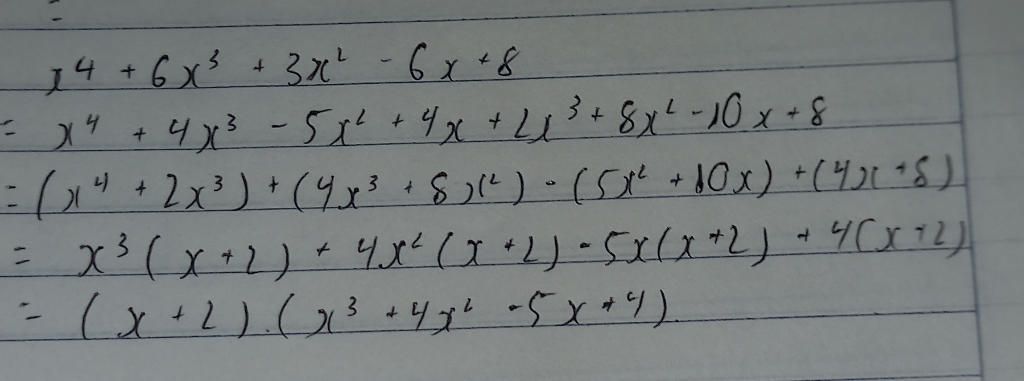 x⁴ + 6x³ + 3x² - 6x + 8
= x⁴ + 4x³ - 5x² + 4x + 2x³ + 8x² - 10x + 8
= (x⁴ + 2x³) + (4x³ + 8x²) - (5x² + 10x) + (4x + 8)
= x³(x + 2) + 4x²(x + 2) - 5x(x + 2) + 4(x + 2)
= (x + 2).(x³ + 4x² - 5x + 4)